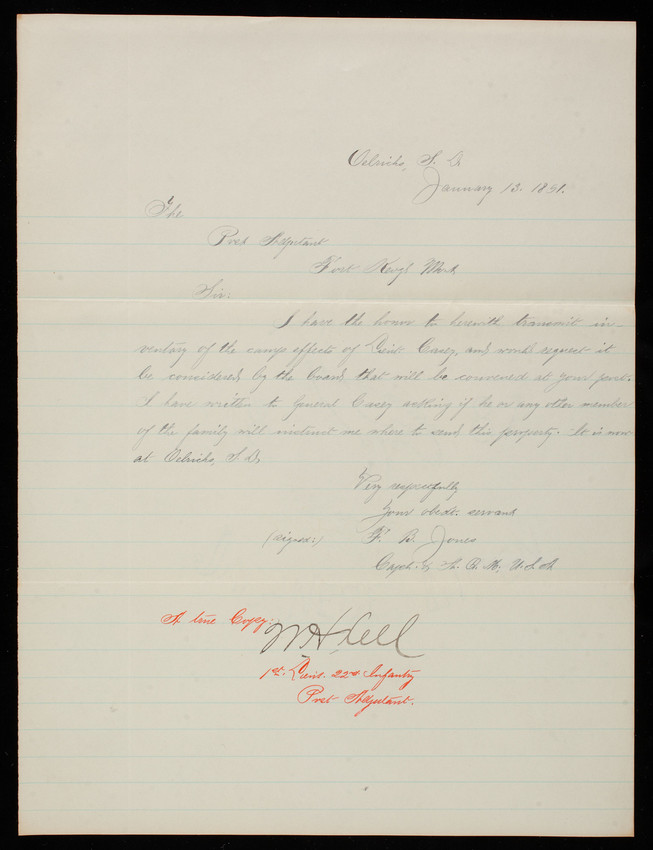 Oelrichs, S. D.
January 13. 1891.
The
Post Adjutant
Fort Keogh Mont.
Sir:
I have the honor to herewith transmit in-
ventary of the camp effects of Lieut. Casey, and would request it
be considered by the Board that will be convened at your post.
I have written to General Casey asking if he or any other member
of the family will instruct me where to send this property. It is now
at Oelrichs, S. D.
Very respectfully
Your obedt. servant
(signed:) F. B. Jones
Capt. & A. Q. M., U.S.A.
A true Copy:
W H Kell
1st. Lieut. 22d. Infantry
Post Adjutant.